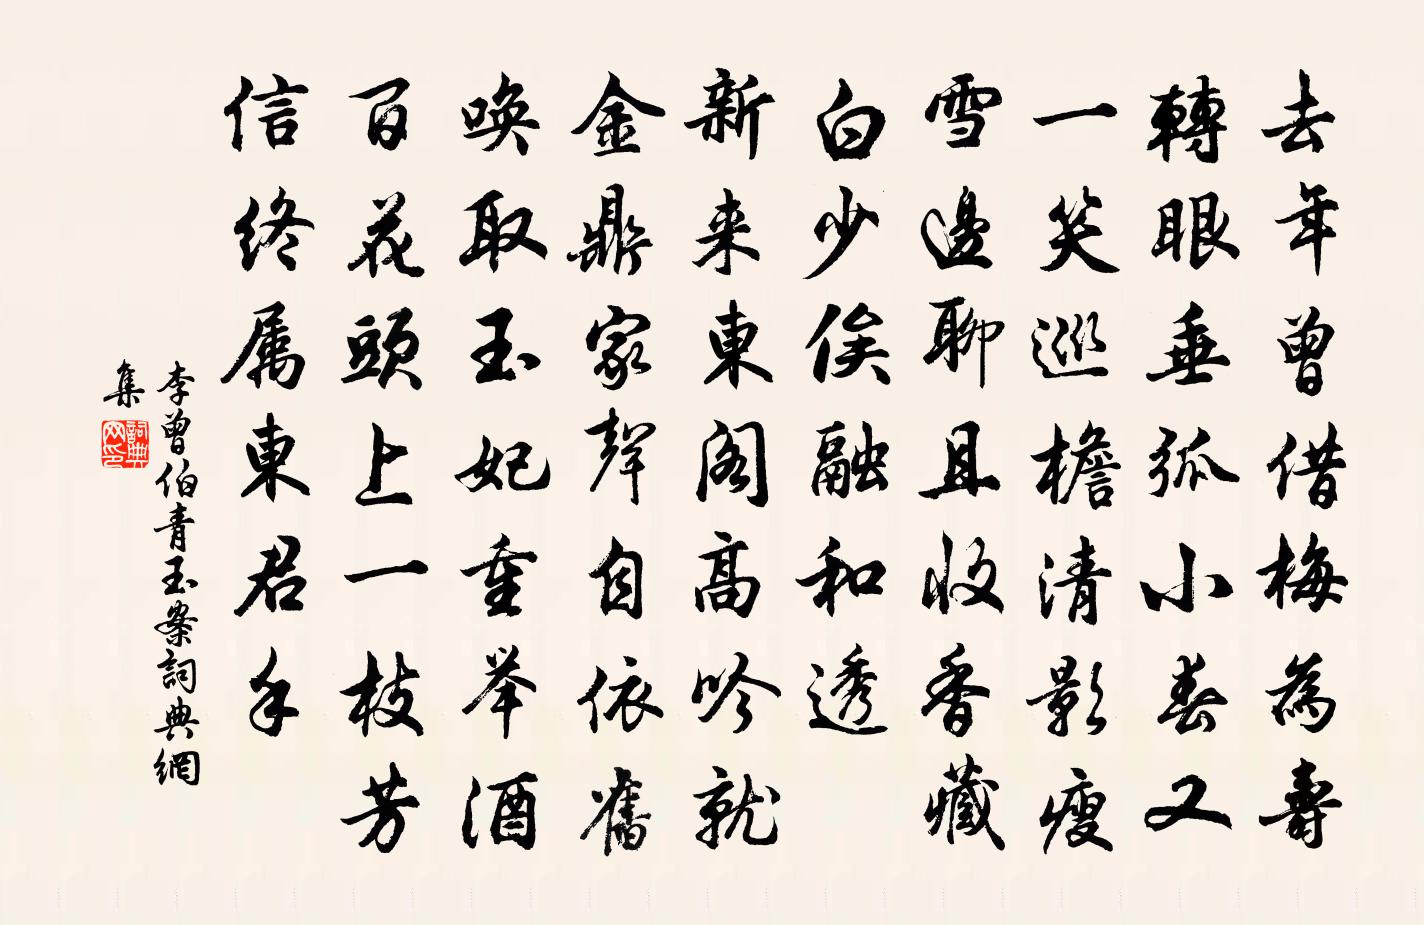 去年曾借梅為壽
轉眼垂弧小春又
一笑巡檐清影瘦
雪邊聊且收香藏
白少俟融和透
新来東閣高吟就
金鼎家聲自依舊
喚取玉妃重举酒
百花頭上一枝芳
信終属東君手
李曾伯青玉案詞典網
集
詞典网印